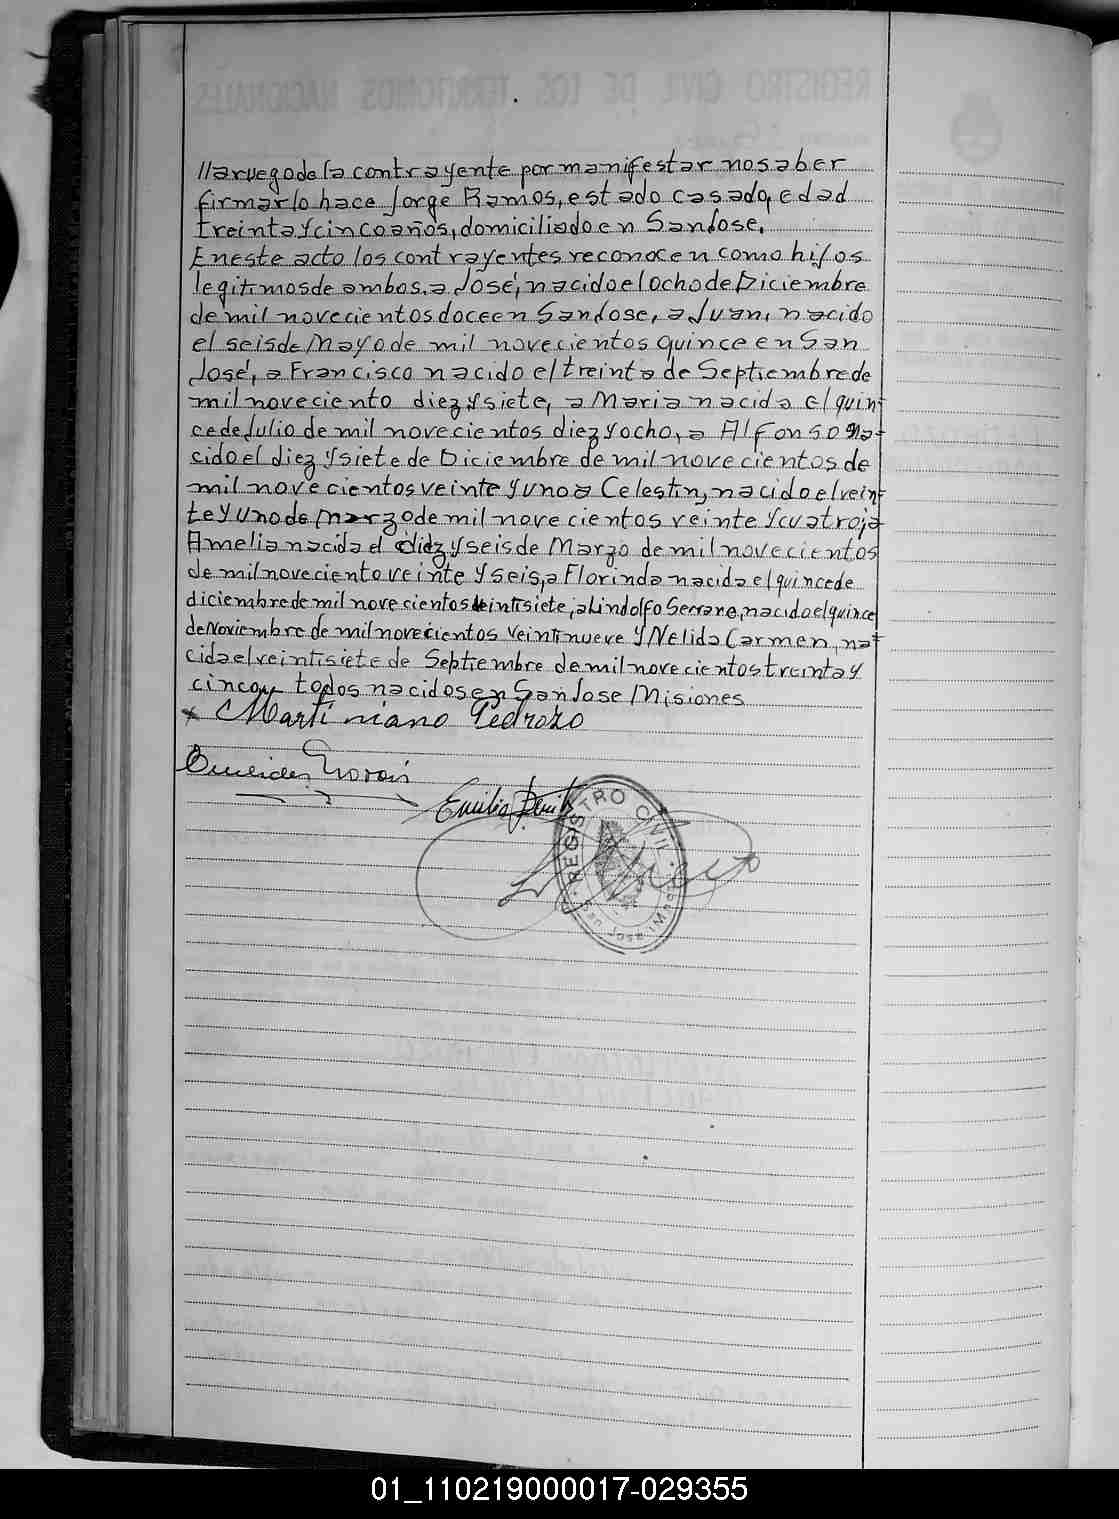 lla ruego de la contrayente por manifestar no saber
firmar lo hace Jorge Ramos, estado casado, edad
treinta y cinco años, domiciliado en San Jose.
En este acto los contrayentes reconocen como hijos
legitimos de ambos, a José, nacido el ocho de Diciembre
de mil novecientos doce en San Jose, a Juan, nacido
el seis de Mayo de mil novecientos quince en San
José, a Francisco nacido el treinta de Septiembre de
mil noveciento diez y siete, a Maria nacida el quin-
ce de Julio de mil novecientos diez y ocho, a Alfonso na-
cido el diez y siete de Diciembre de mil novecientos de
mil novecientos veinte y uno a Celestin, nacido el vein-
te y uno de Marzo de mil novecientos veinte y cuatro, a
Amelia nacida el diez y seis de Marzo de mil novecientos
de mil noveciento veinte y seis, a Florinda nacida el quince de
diciembre de mil novecientos veintisiete, a Lindolfo Serrano, nacido el quince
de Noviembre de mil novecientos veintinueve y Nelida Carmen, na-
cida el veintisiete de Septiembre de mil novecientos treinta y
cinco y todos nacidos en San Jose Misiones
Martiniano Pedrozo
Emilio
REGISTRO CIVIL
01_110219000017-029355